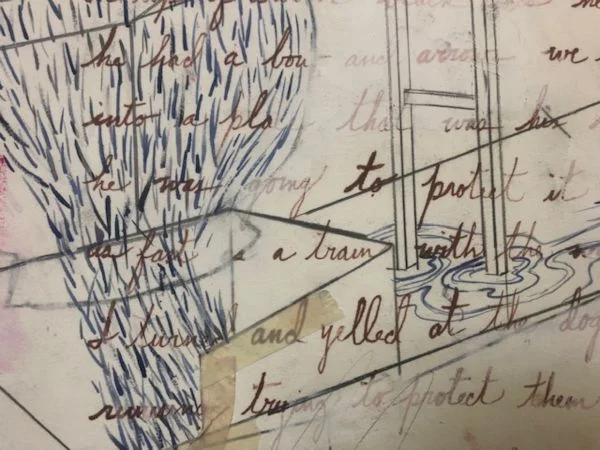 he had a bow and arrow we
into a place that was his
he was going to protect it
as fast as a train with the
I turned and yelled at the dog
running trying to protect them